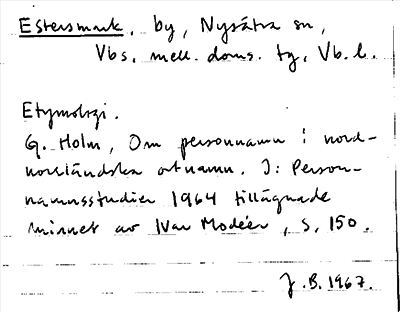 Estersmark, by, Nysätra sn,
Vbs. mell. doms. tg, Vb. l.
Etymologi.
G. Holm, Om personnamn i nord-
norrländska ortnamn. I: Person-
namnsstudier 1964 tillägnade
minnet av Ivar Modéer, s. 150.
J. B. 1967.